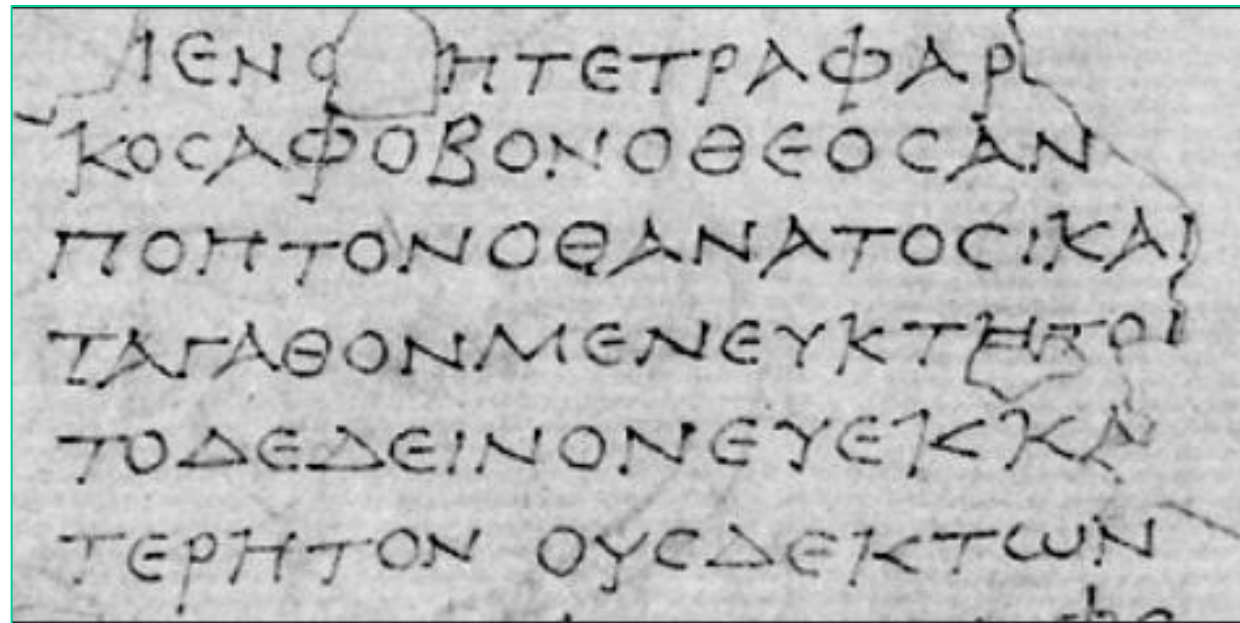 ΙΕΝΟ ΗΤΕΤΡΑΦΑΡ
ΚΟϹΑΦΟΒΟΝΟΘΕΟϹΑΝ
ΠΟΗΤΟΝΟΘΑΝΑΤΟϹΙΚΑΙ
ΤΑΓΑΘΟΝΜΕΝΕΥΚΤΗΤΟΙ
ΤΟΔΕΔΕΙΝΟΝΕΥΕΚΚΑ
ΤΕΡΗΤΟΝ ΟΥϹΔΕΚΤΩΝ